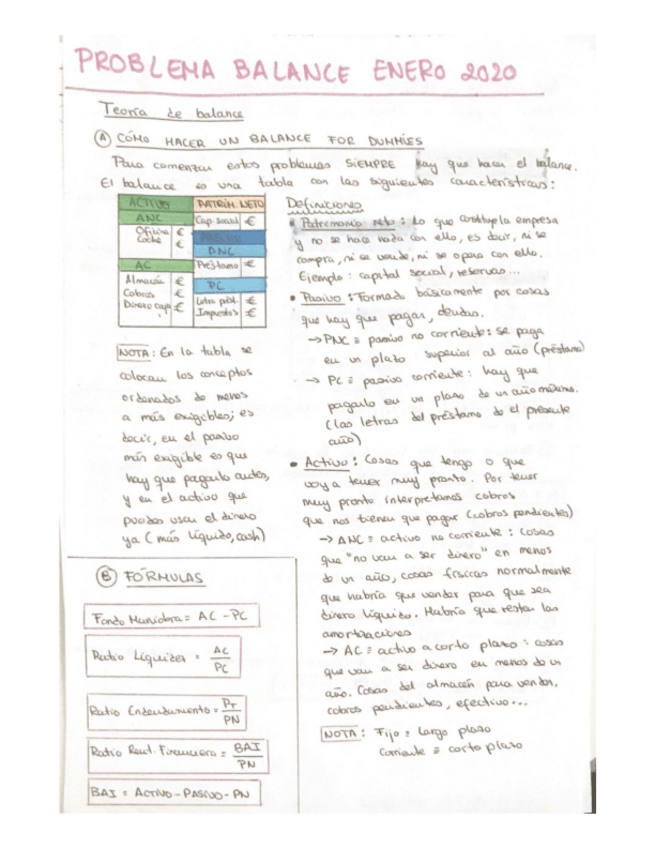 PROBLEMA BALANCE ENERO 2020
Teoría de balance
A CÓMO HACER UN BALANCE FOR DUMMIES
Para comenzar estos problemas SIEMPRE hay que hacer el balance.
El balance es una tabla con las siguientes características:
ACTIVO PATRIM. NETO
ANC Cap. social €
Oficina €
Coche €
PASIVO
PNC
AC Préstamo €
Almacén €
Cobros €
Dinero caja €
PC
Letra prést. €
Impuestos €
NOTA: En la tabla se
colocan los conceptos
ordenados de menos
a más exigibles; es
decir, en el pasivo
más exigible es que
hay que pagarlo antes,
y en el activo que
puedes usar el dinero
ya (más líquido, cash)
Definiciones
• Patrimonio neto: Lo que constituye la empresa
y no se hace nada con ello, es decir, ni se
compra, ni se vende, ni se opera con ello.
Ejemplo: capital social, reservas...
• Pasivo: Formado básicamente por cosas
que hay que pagar, deudas.
→ PNC ≡ pasivo no corriente: se paga
en un plazo superior al año (préstamo)
→ PC ≡ pasivo corriente: hay que
pagarlo en un plazo de un año máximo.
(las letras del préstamo de el presente
año)
• Activo: Cosas que tengo o que
voy a tener muy pronto. Por tener
muy pronto interpretamos cobros
que nos tienen que pagar (cobros pendientes)
→ ANC ≡ activo no corriente: cosas
que "no van a ser dinero" en menos
de un año, cosas físicas normalmente
que habría que vender para que sea
dinero líquido. Habría que restar las
amortizaciones
→ AC ≡ activo a corto plazo: cosas
que van a ser dinero en menos de un
año. Cosas del almacén para vender,
cobros pendientes, efectivo...
NOTA: Fijo ≡ largo plazo
Corriente ≡ corto plazo
B FÓRMULAS
Fondo Maniobra = AC - PC
Ratio Liquidez = AC / PC
Ratio Endeudamiento = PT / PN
Ratio Rent. Financiera = BAI / PN
BAI = ACTIVO - PASIVO - PN